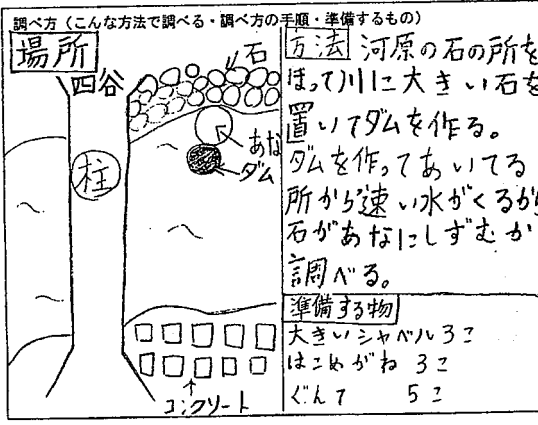 調べ方（こんな方法で調べる・調べ方の手順・準備するもの）
場所
四谷
石
あな
ダム
柱
コンクリート
方法 河原の石の所を
ほって川に大きい石を
置いてダムを作る。
ダムを作ってあいてる
所から速い水がくるから
石があなにしずむか
調べる。
準備する物
大きいシャベル 3コ
はこめがね 3コ
ぐんて 5コ